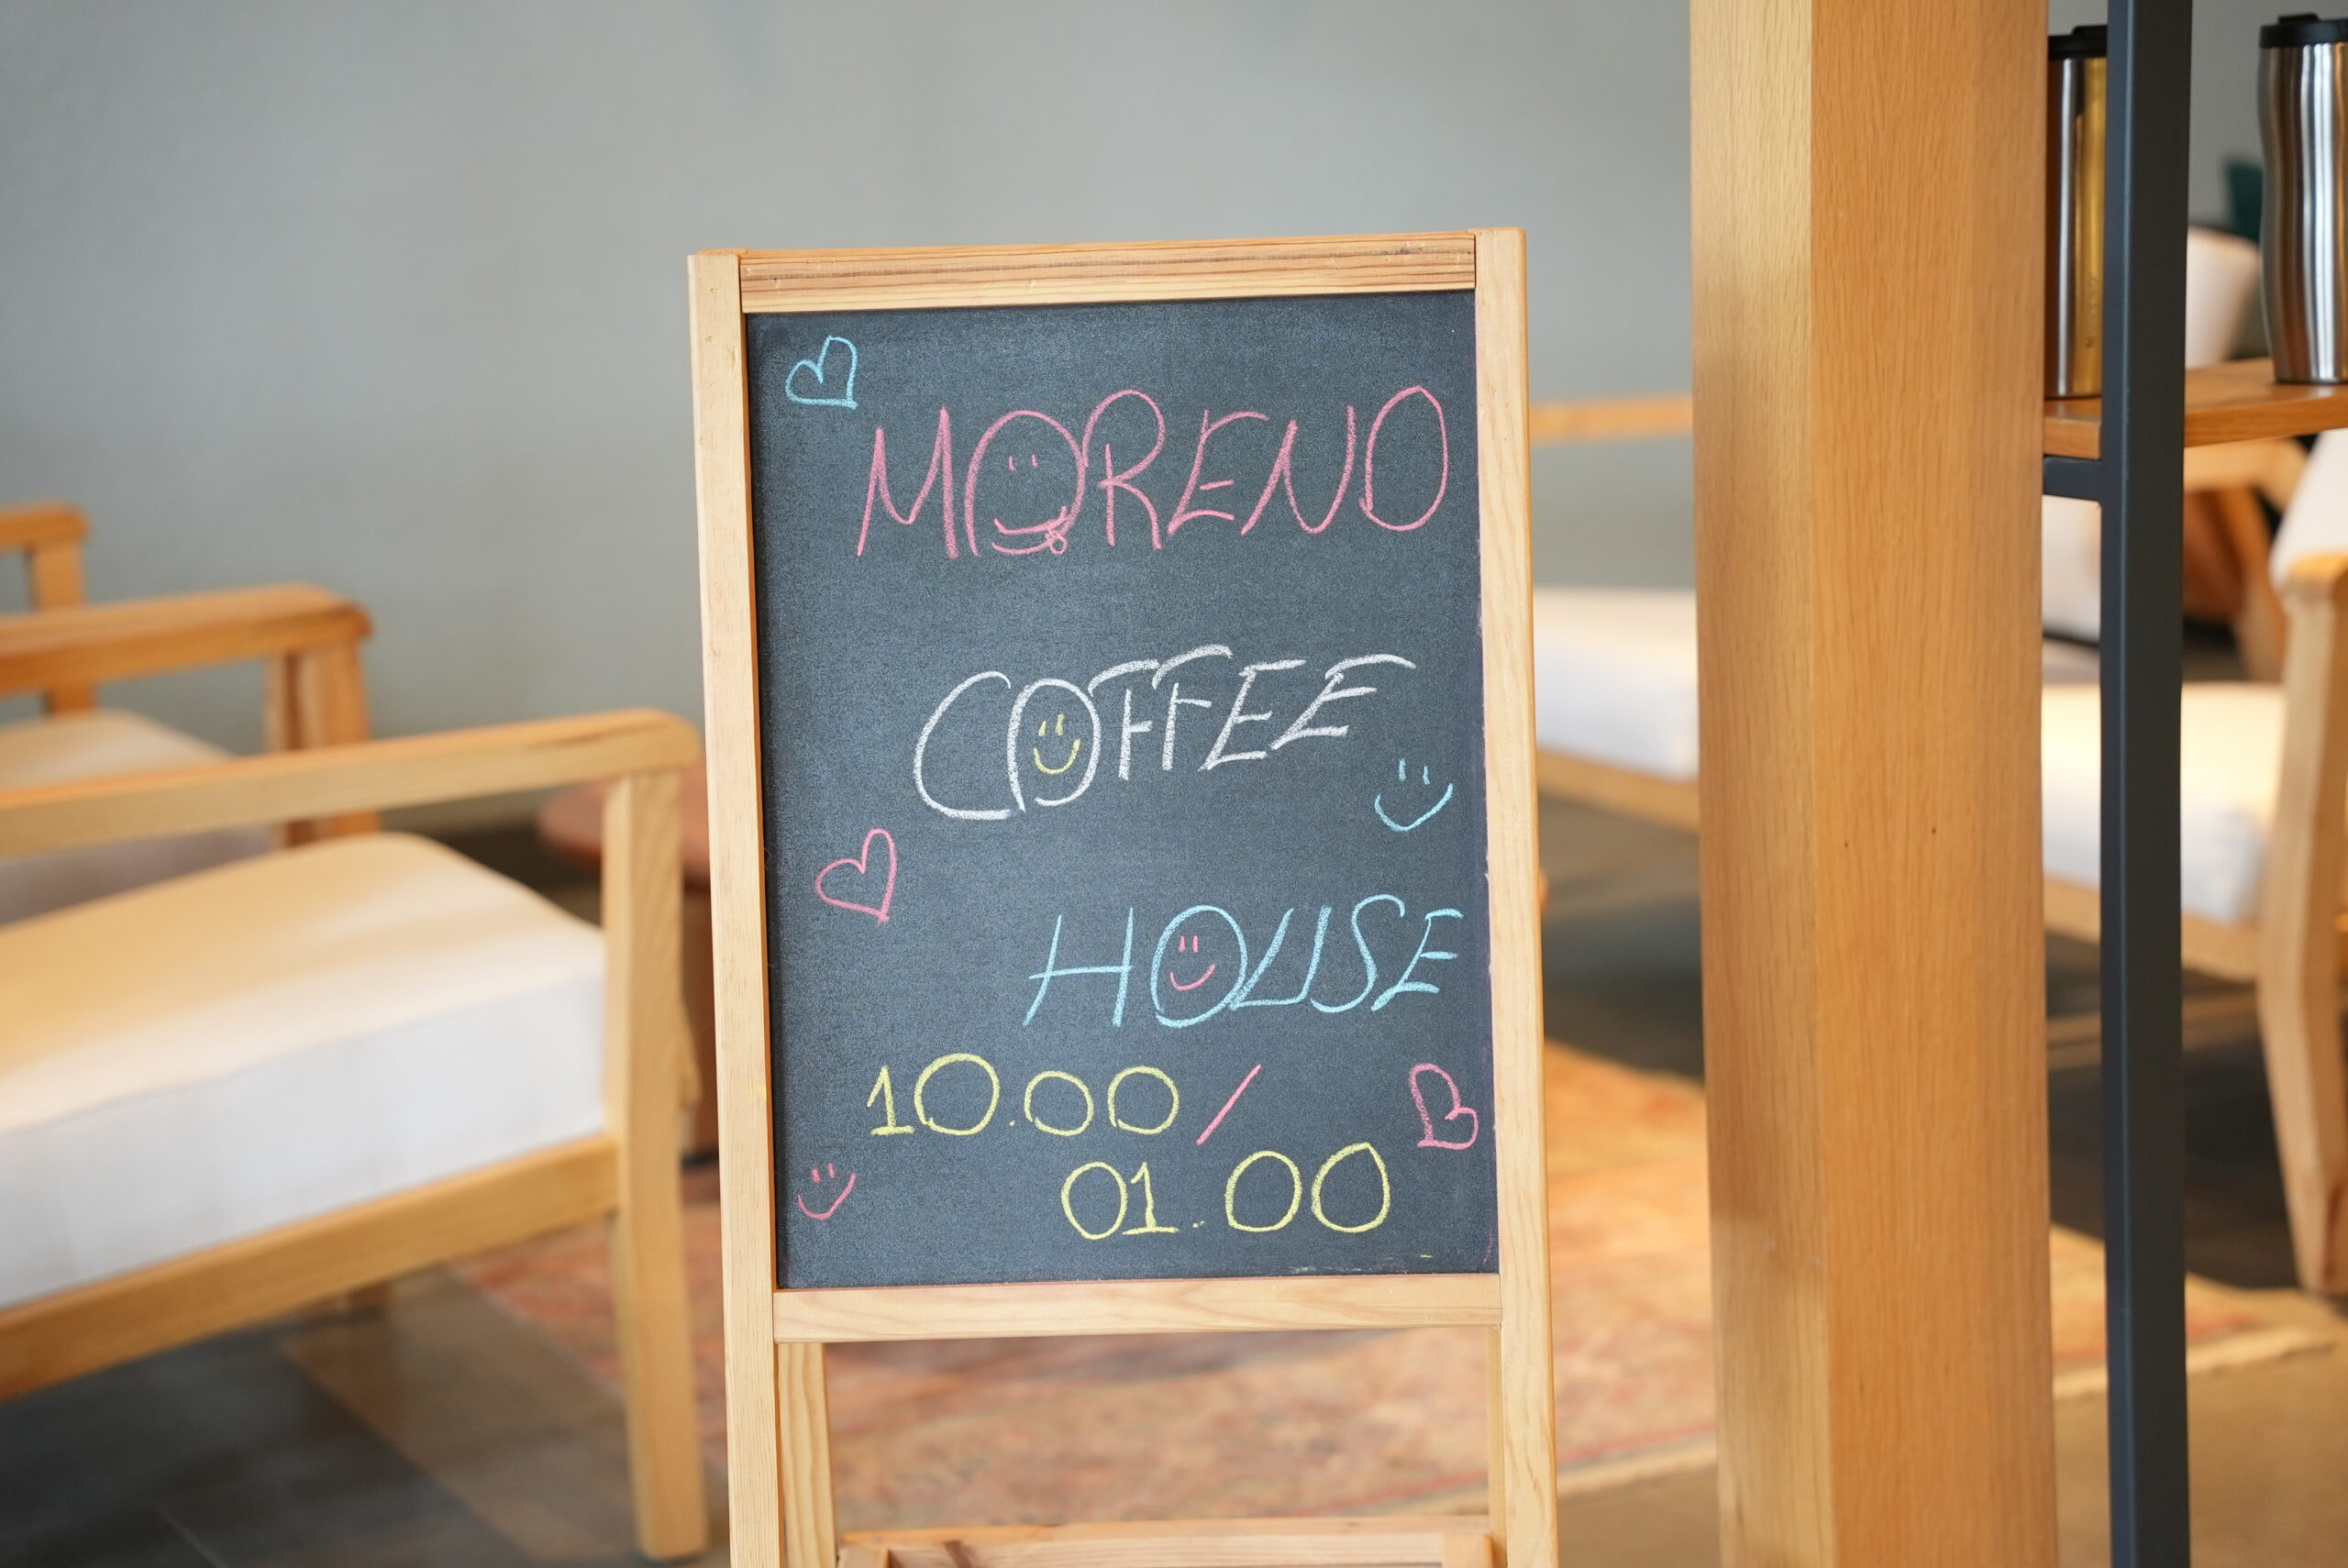 MORENO
COFFEE
HOUSE
10.00/
01.00